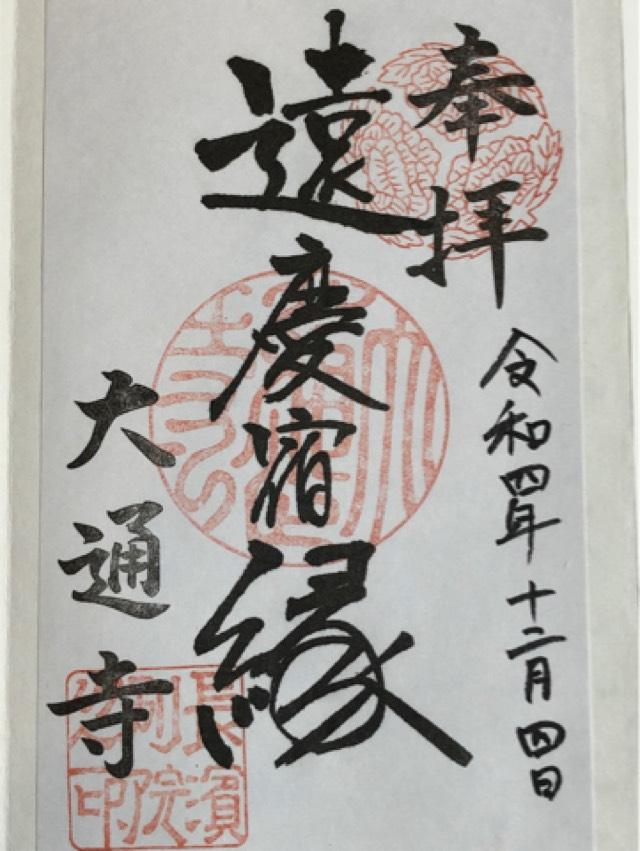 奉拝
令和四年十二月四日
遠慶宿縁
大通寺
大通寺
長濱
別院